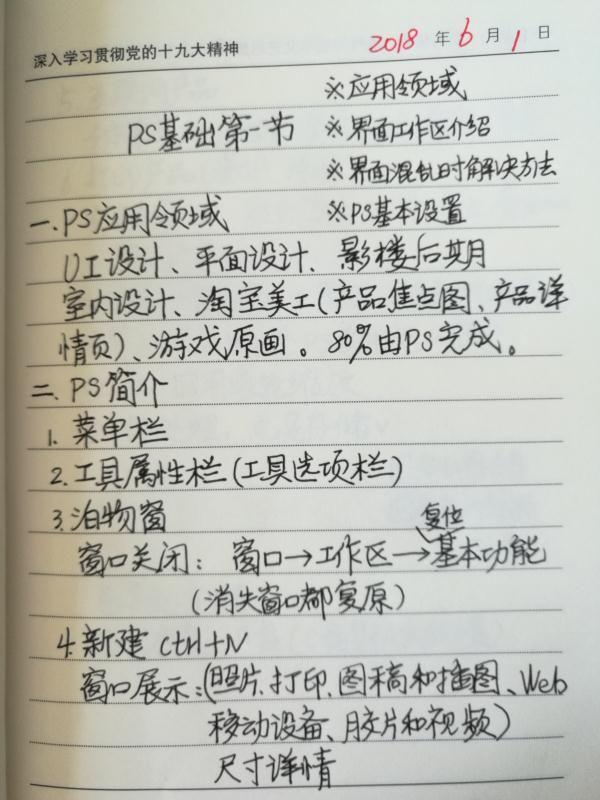 深入学习贯彻党的十九大精神
2018年6月1日
※应用领域
PS基础第一节 ※界面工作区介绍
※界面混乱时解决方法
一.PS应用领域 ※PS基本设置
UI设计、平面设计、影楼后期
室内设计、淘宝美工(产品焦点图、产品详
情页)、游戏原画。80%由PS完成。
二.PS简介
1.菜单栏
2.工具属性栏(工具选项栏)
3.泊物窗
复位
窗口关闭:窗口→工作区→基本功能
(消失窗口都复原)
4.新建 ctrl+N
窗口展示:(照片、打印、图稿和插图、Web
移动设备、胶片和视频)
尺寸详情